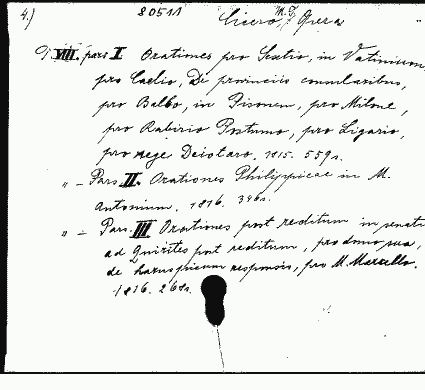 4.) 80511 Cicero, M. T. Opera
T. VIII. pars I Orationes pro Sextio, in Vatinium,
pro Caelio, De provinciis consularibus,
pro Balbo, in Pisonem, pro Milone,
pro Rabirio Postumo, pro Ligario,
pro rege Deiotaro. 1815. 559 s.
" – Pars. II. Orationes Philippicae in M.
Antonium. 1816. 396 s.
" – Pars. III Orationes post reditum in senatu
ad Quirites post reditum, pro domo sua,
de haruspicum responsis, pro M. Marcello.
1816. 268 s.